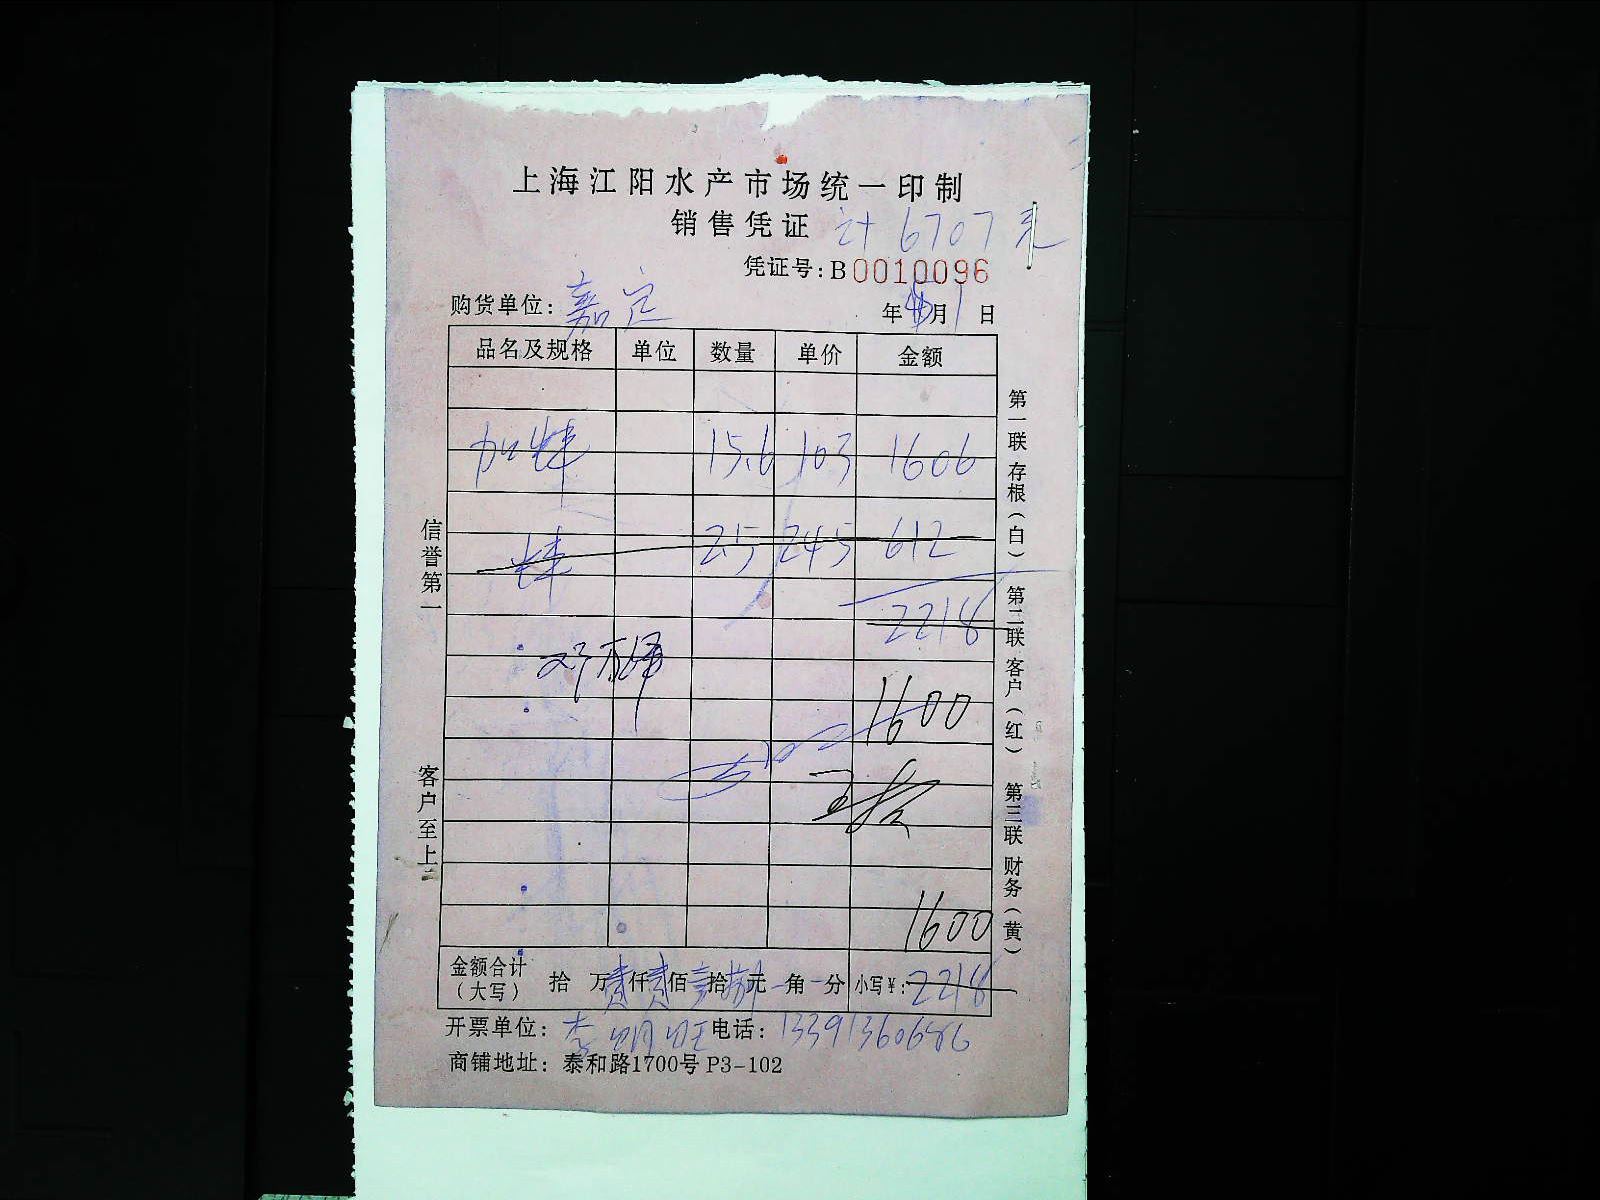 上海江阳水产市场统一印制
销售凭证 计6707元
凭证号:B0010096
购货单位:嘉定 年5月1日
品名及规格 单位 数量 单价 金额
加 15.6 103 1606
2.5 245 612
2218
邓万泽
1600
1600
金额合计(大写) 拾 万贰仟贰佰 拾 元 角 分 小写¥:2218
开票单位:李明旺 电话:13391360686
商铺地址:泰和路1700号P3-102
信誉第一
客户至上
第一联存根(白)
第二联客户(红)
第三联财务(黄)